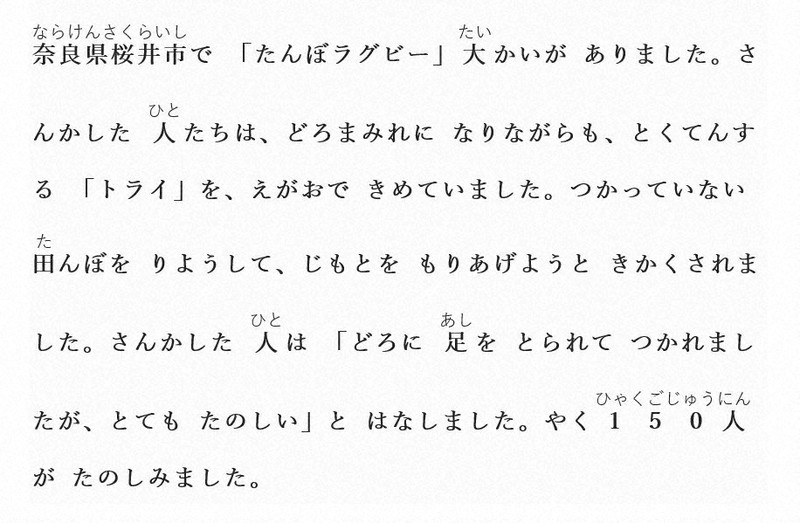 ならけんさくらいし たい
奈良県桜井市で 「たんぼラグビー」大かいが ありました。さ
ひと
んかした 人たちは、どろまみれに なりながらも、とくてんす
る 「トライ」を、えがおで きめていました。つかっていない
た
田んぼを りようして、じもとを もりあげようと きかくされま
ひと あし
した。さんかした 人は 「どろに 足を とられて つかれまし
ひゃくごじゅうにん
たが、とても たのしい」と はなしました。やく１５０人
が たのしみました。